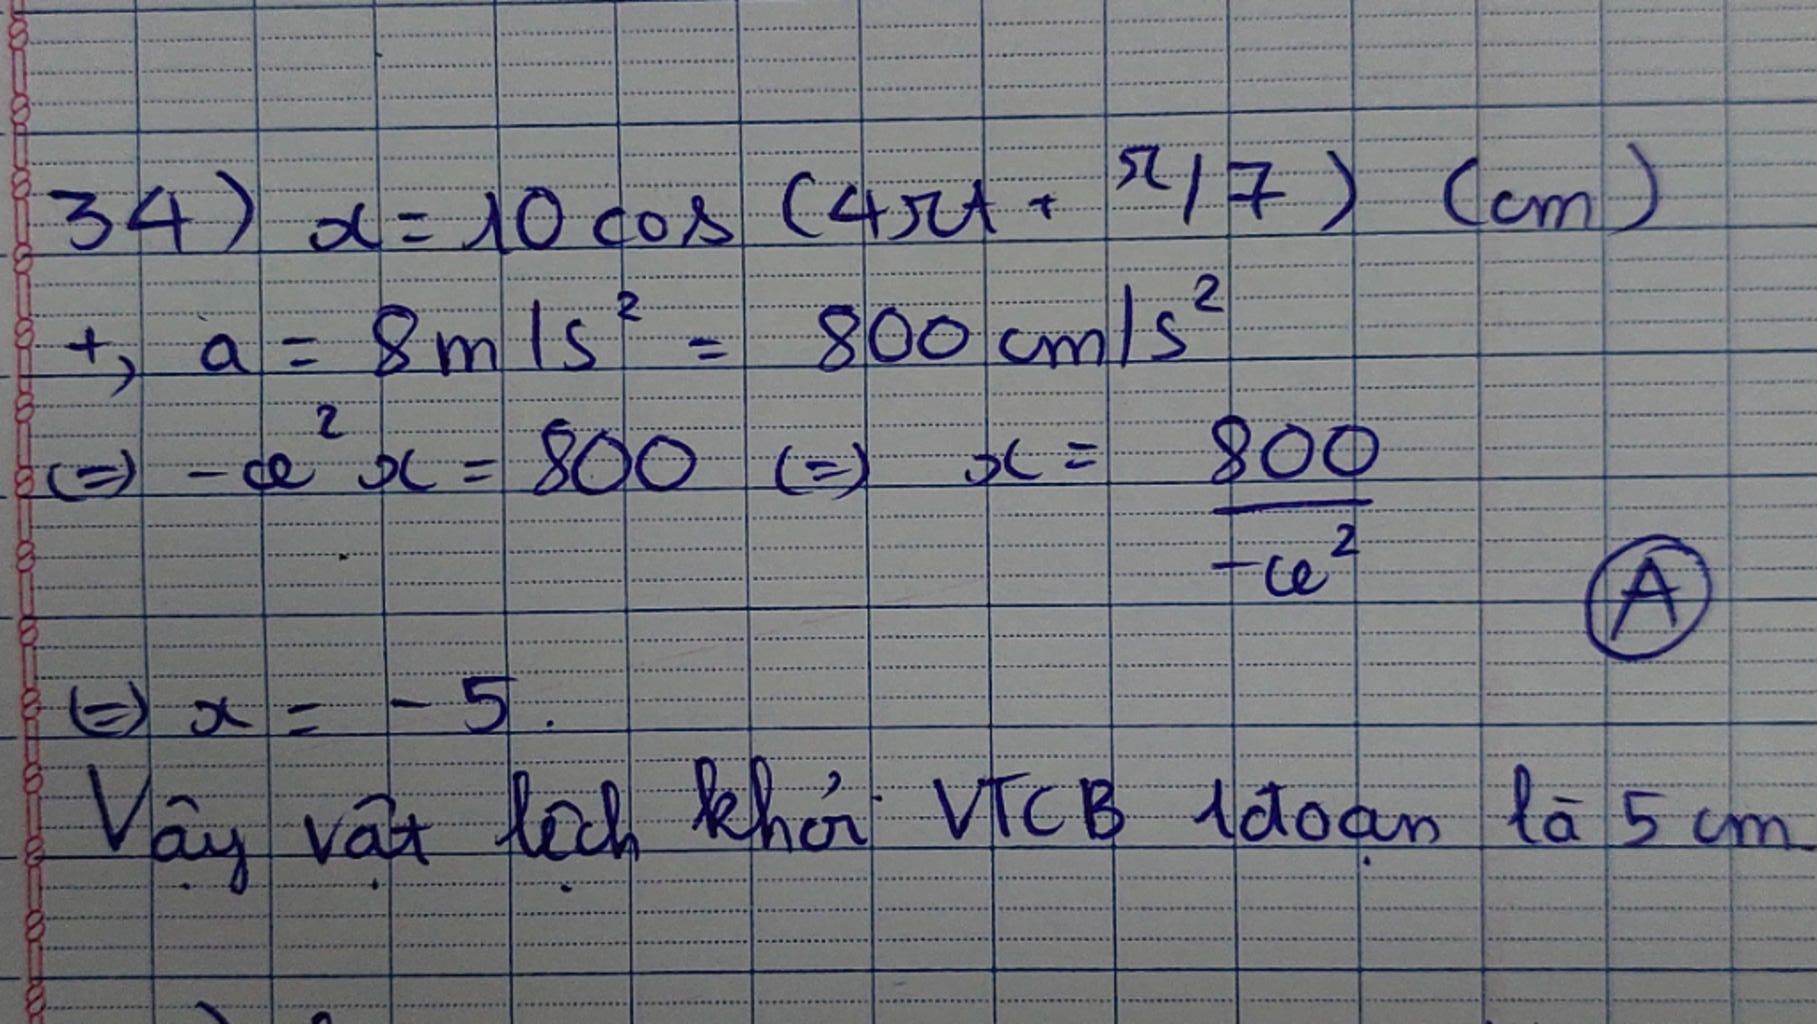 34) x = 10 cos (4πt + π/7) (cm)
+, a = 8m/s² = 800 cm/s²
(=) -ω² x = 800 (=) x = 800 / -ω²
A
(=) x = -5.
Vậy vật lệch khỏi VTCB 1 đoạn là 5 cm